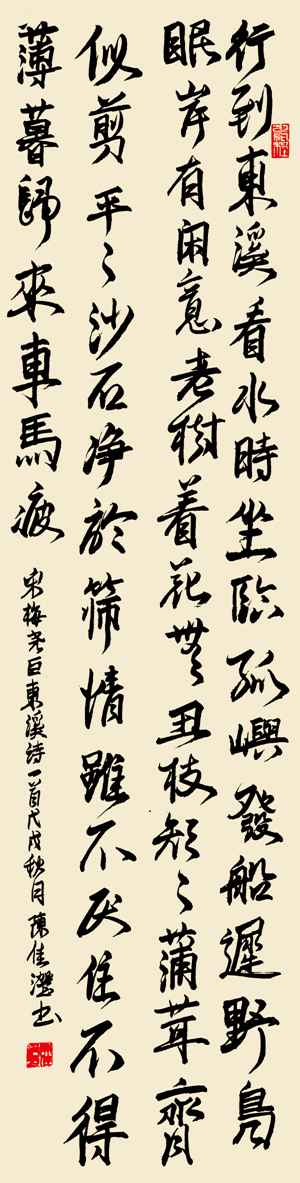 行到東溪看水時坐臨孤嶼發船遲野鳧
眠岸有闲意老樹着花無丑枝短〻蒲茸齊
似剪平〻沙石净於篩情雖不厌住不得
薄暮歸來車馬疲
宋梅尧臣東溪詩一首戊戌秋月陳佳書